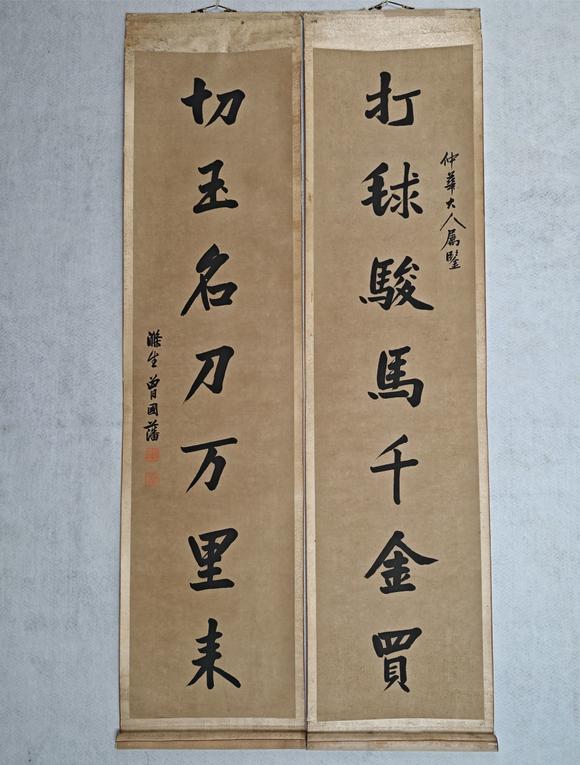 打球駿馬千金買
仲華大人属鑒
切玉名刀万里来
滌生曾國藩